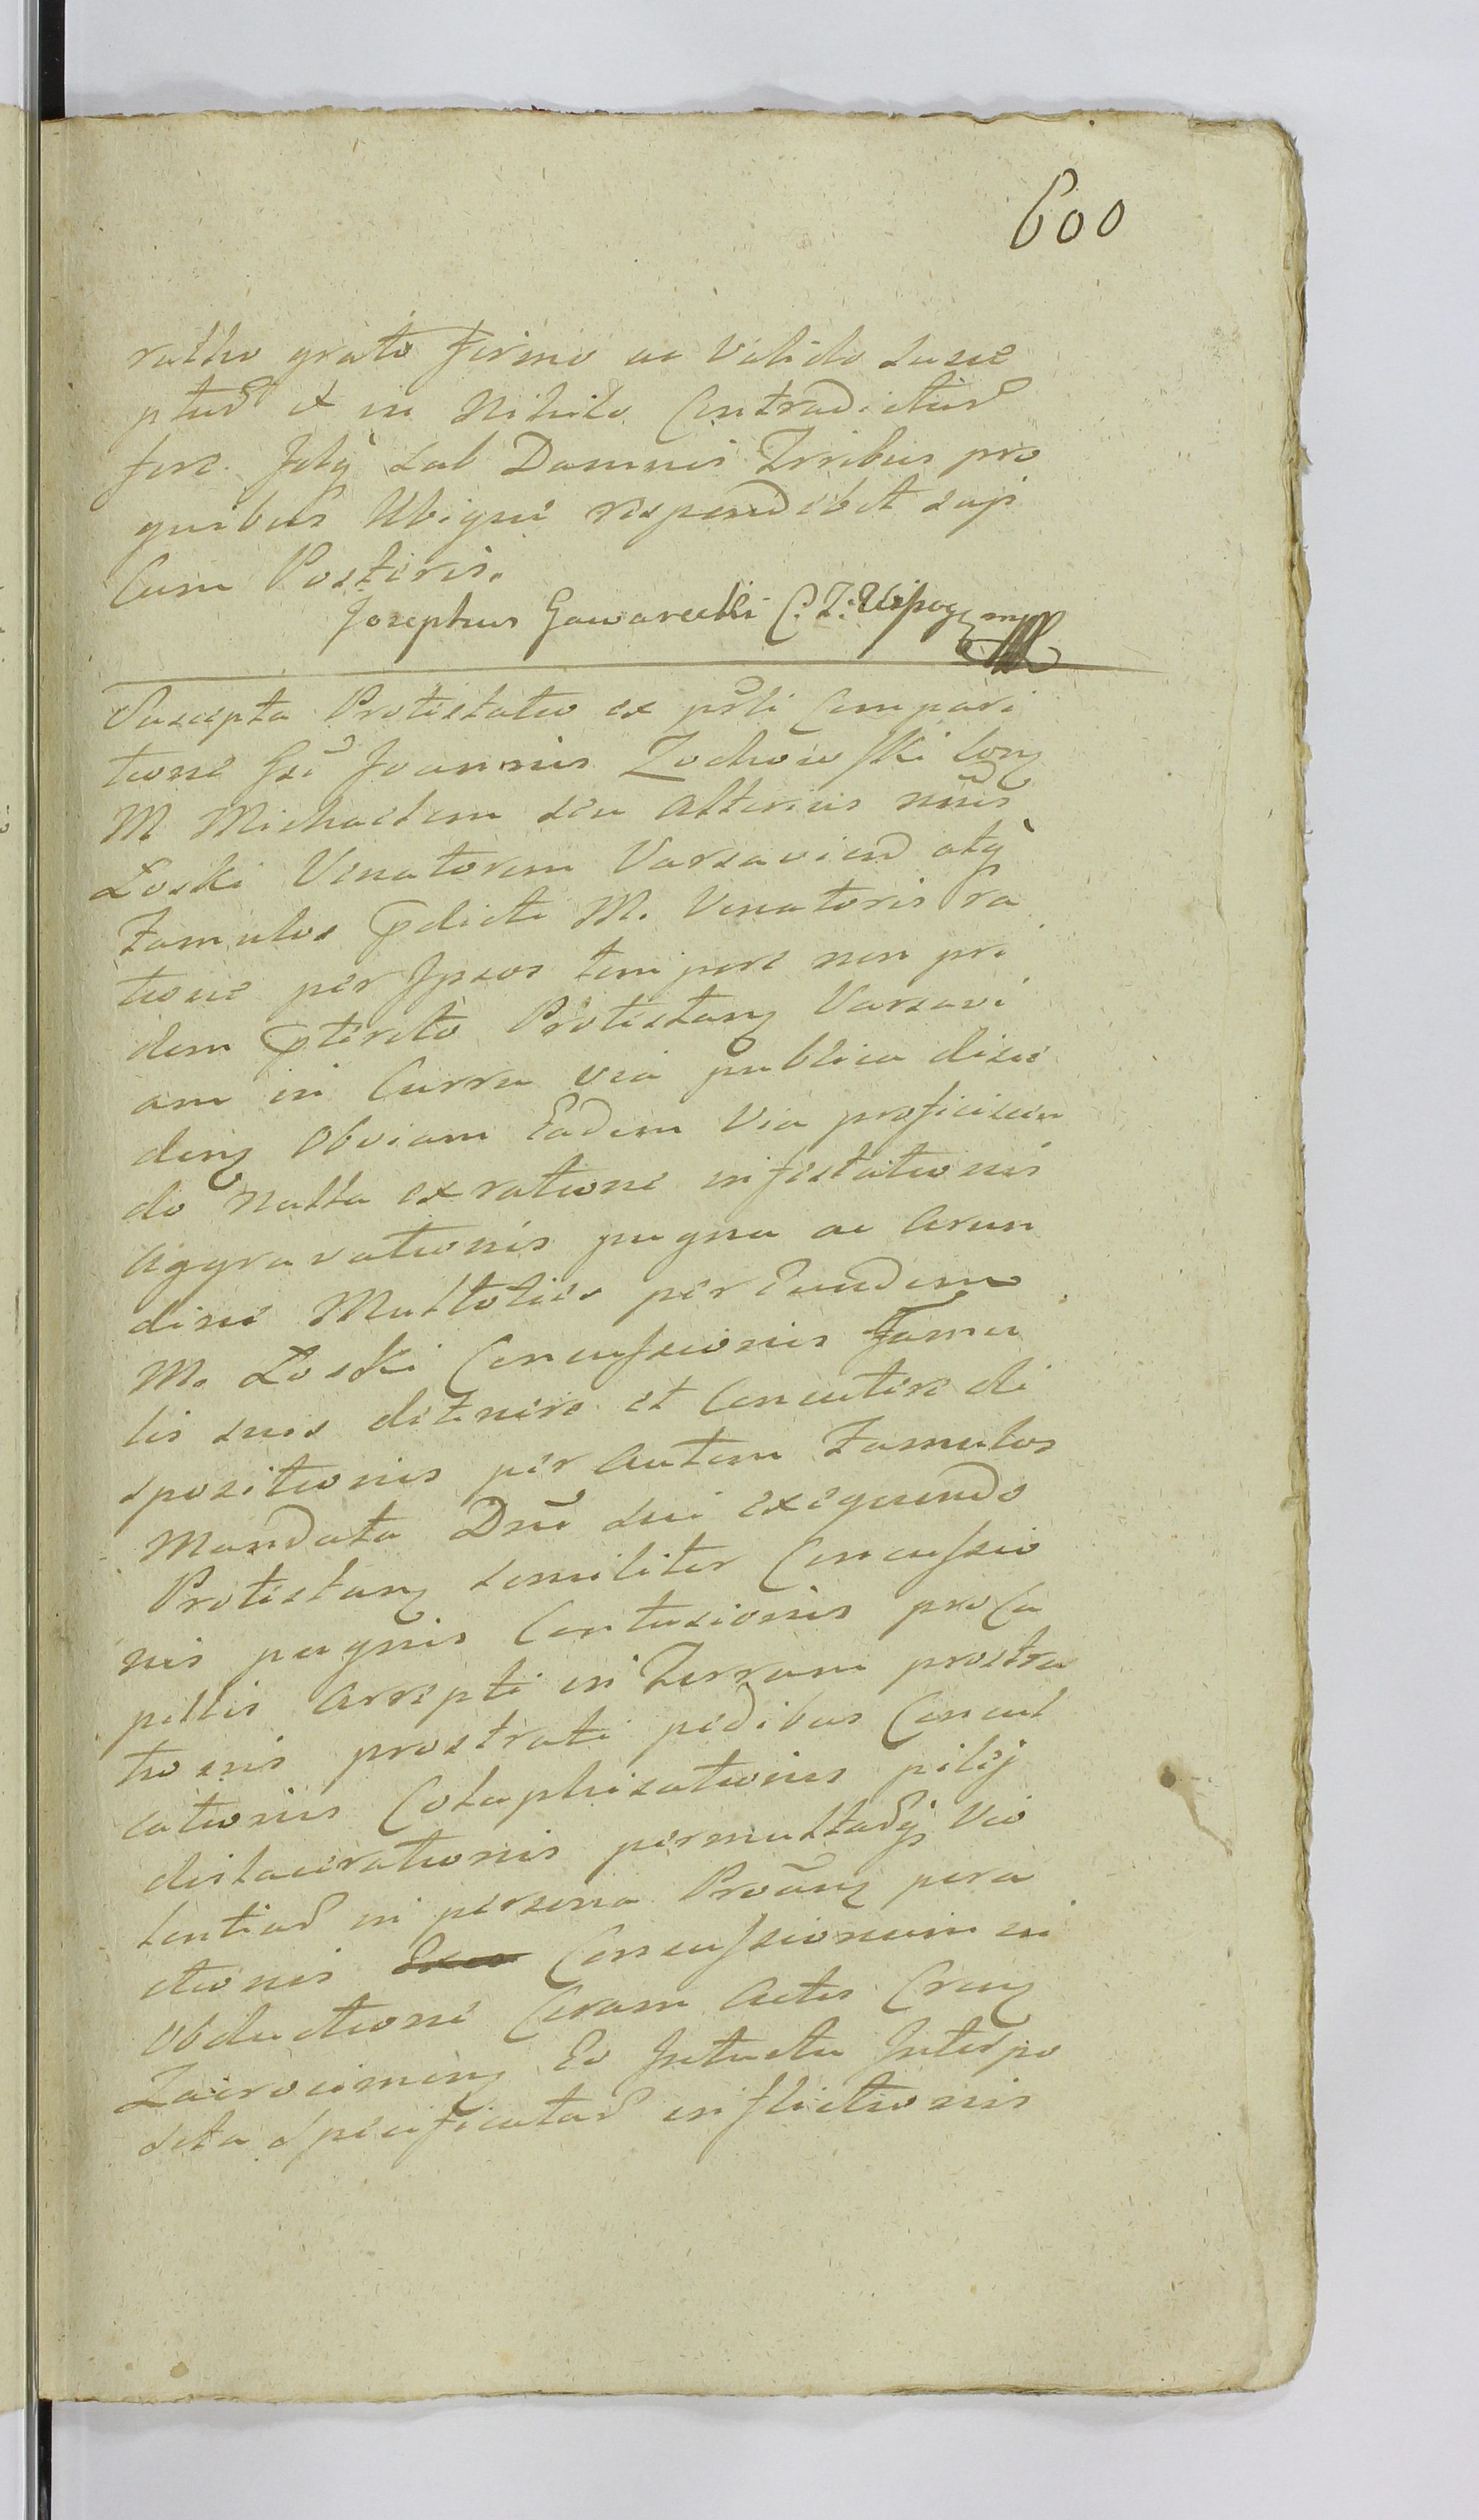 600
ratho grato firmo ac valido susce
ptur et in nihilo Contradictur
fore. Idq̀ sub Damnis Trribus pro
quibus Ubique respondebit suis
Cum Posteris.
Josephus Gawarecki C: T: Wiſsog mp
Suscepta Protestatio ex pñti Compari
tione Gsi Joannis Zochowſki Conz
M Michaelem seu alterius nñis
Łoski Venatorem Varsavien atq̀
Famulos p̄dicti M. Venatoris ra
tione per Ipsos tempore non pri
dem p̄terito Protestanz Varsavi
am in Curru via publica disce
denz Obviam Eadem Via proficiscen
do Nulla ex ratione infestationis
aggravationis pugna ac arun
dine Multoties per Eundem
M. Łoski Concuſsionis Famu
lis suis detinere et Concutere di
spositionis per autem Famulos
Mandata Dñi sui exequendo
Protestanz similiter Concuſsio
nis pugnis Contusionis pro Ca
pillis arrepti in Terram prostra
tionis prostrati pedibus Concul
cationis Colaphisationis pilej
dislacerationis permultarq̀ Vio
lentiar in persona Proñnz pera
ctionis Concuſsionum in
obductione Coram Actis Crenz
Zacrocimenz Eo Intuitu Interpo
sita Specificatar inflictionis